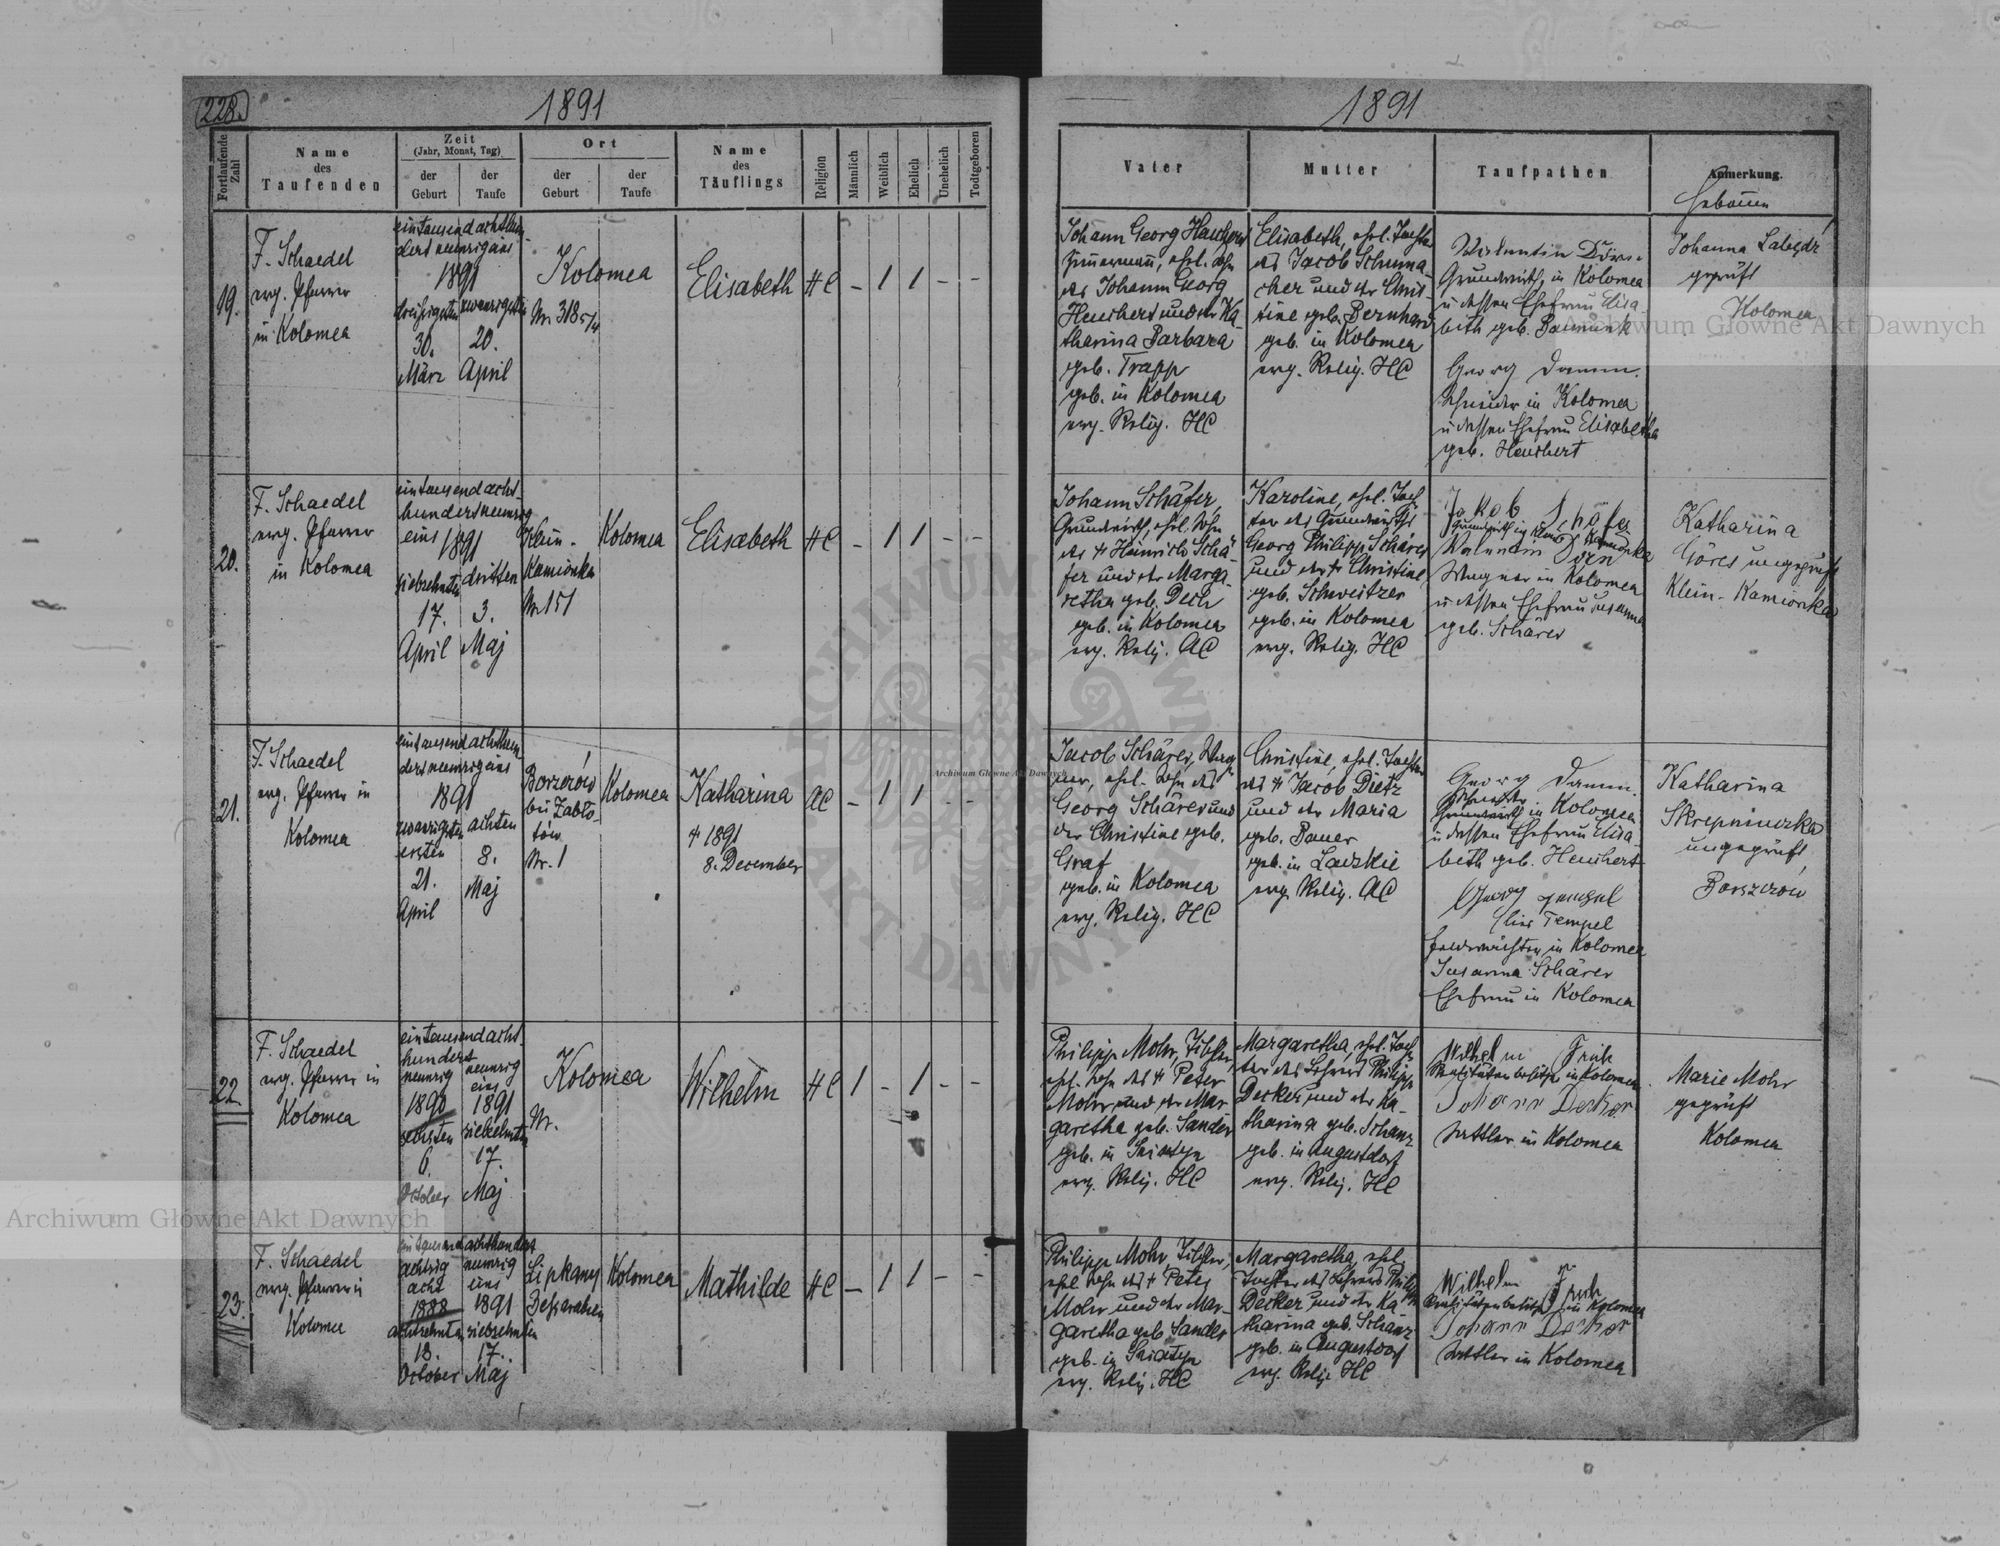 228.
1891
Fortlaufende Zahl
Name
des
Taufenden
Zeit
(Jahr, Monat, Tag)
der
Geburt
der
Taufe
Ort
der
Geburt
der
Taufe
Name
des
Täuflings
Religion
Männlich
Weiblich
Ehelich
Unehelich
Todtgeboren
19.
F. Schaedel
evg. Pfarrer
in Kolomea
eintausendachthun-
dertneunzigeins
1891
dreißigsten
30.
März
zwanzigsten
20.
April
Kolomea
Nr. 318 5/4
Elisabeth
HC
-
1
1
-
-
20.
F. Schaedel
evg. Pfarrer
in Kolomea
eintausendacht-
hundertneunzig
eins 1891
siebzehnten
17.
April
dritten
3.
Maj
Klein-
Kamionka
Nr. 151
Kolomea
Elisabeth
HC
-
1
1
-
-
21.
F. Schaedel
evg. Pfarrer in
Kolomea
eintausendachthun-
dertneunzigeins
1891
zwanzigsten
ersten
21.
April
achten
8.
Maj
Borszczów
bei Zabło-
tów
Nr. 1
Kolomea
Katharina
† 1891
8. December
AC
-
1
1
-
-
22.
F. Schaedel
evg. Pfarrer in
Kolomea
eintausendacht-
hundert
neunzig
1890
sechsten
6.
October
neunzig
eins
1891
siebzehnten
17.
Maj
Kolomea
Nr.
Wilhelm
HC
1
-
1
-
-
23.
F. Schaedel
evg. Pfarrer in
Kolomea
eintausendachthundert
achtzig
acht
1888
achtzehnten
18.
October
neunzig
eins
1891
siebzehnten
17.
Maj
Lipkany
Beßarabien
Kolomea
Mathilde
HC
-
1
1
-
-
1891
Vater
Mutter
Taufpathen
Anmerkung.
Hebamme
Johann Georg Heuchert
Zimmermann, ehel. Sohn
des Johann Georg
Heuchert und der Ka-
tharina Barbara
geb. Trapp
geb. in Kolomea
evg. Relig. HC
Elisabeth, ehel. Tochter
des Jacob Schuma-
cher und der Chris-
tine geb. Bernhard
geb. in Kolomea
evg. Relig. HC
Grundwirth, in Kolomea
u dessen Ehefrau Elisa-
beth geb.
Georg Damm.
Schneider in Kolomea
u dessen Ehefrau Elisabetha
geb. Heuchert
Johanna
geprüft
Kolomea
Johann Schäfer,
Grundwirth, ehel. Sohn
des † Heinrich Schä-
fer und der Marga-
retha geb. Dech
geb. in Kolomea
evg. Relig. AC
Karoline, ehel. Toch-
ter des Grundwirths
Georg Philipp Schärer
und der † Christine
geb. Schweitzer
geb. in Kolomea
evg. Relig. HC
Jakob Schäfer
Grundwirth in Klein Kamionka
Wagner in Kolomea
u dessen Ehefrau Susanna
geb. Schärer
Katharina
Göres ungeprüft
Klein-Kamionka
Jacob Schärer, Wag-
ner, ehel. Sohn des
Georg Schärer und
der Christine geb.
Graf
geb. in Kolomea
evg. Relig. HC
Christine, ehel. Tochter
des † Jacob Dietz
und der Maria
geb. Bauer
geb. in Laczkie
evg. Relig. AC
Georg Damm.
Schneider
Grundwirth in Kolomea
u dessen Ehefrau Elisa-
beth geb. Heuchert
Georg Tempel
hier Tempel
Feldwächter, in Kolomea
Susanna Schärer
Ehefrau in Kolomea
Katharina
Skrepniuczka
ungeprüft
Borszczów
Philipp Mohr, Tischler,
ehel. Sohn des † Peter
Mohr und der Mar-
garetha geb. Sander
geb. in Sniatyn
evg. Relig. HC
Margaretha, ehel. Toch-
ter des Lehrers Philipp
Decker und der Ka-
tharina geb. Schanz
geb. in Augustdorf
evg. Relig. HC
Wilhelm Früh
Realitätenbesitzer in Kolomea
Johann Decker
Sattler in Kolomea
Marie Mohr
geprüft
Kolomea
Philipp Mohr, Tischler,
ehel. Sohn des † Peter
Mohr und der Mar-
garetha geb. Sander
geb. in Sniatyn
evg. Relig. HC
Margaretha, ehel.
Tochter des Lehrers Philipp
Decker und der Ka-
tharina geb. Schanz
geb. in Augustdorf
evg. Relig. HC
Wilhelm Früh
Realitätenbesitzer in Kolomea
Johann Decker
Sattler in Kolomea
Archiwum Główne Akt Dawnych
Archiwum Główne Akt Dawnych
Archiwum Główne Akt Dawnych